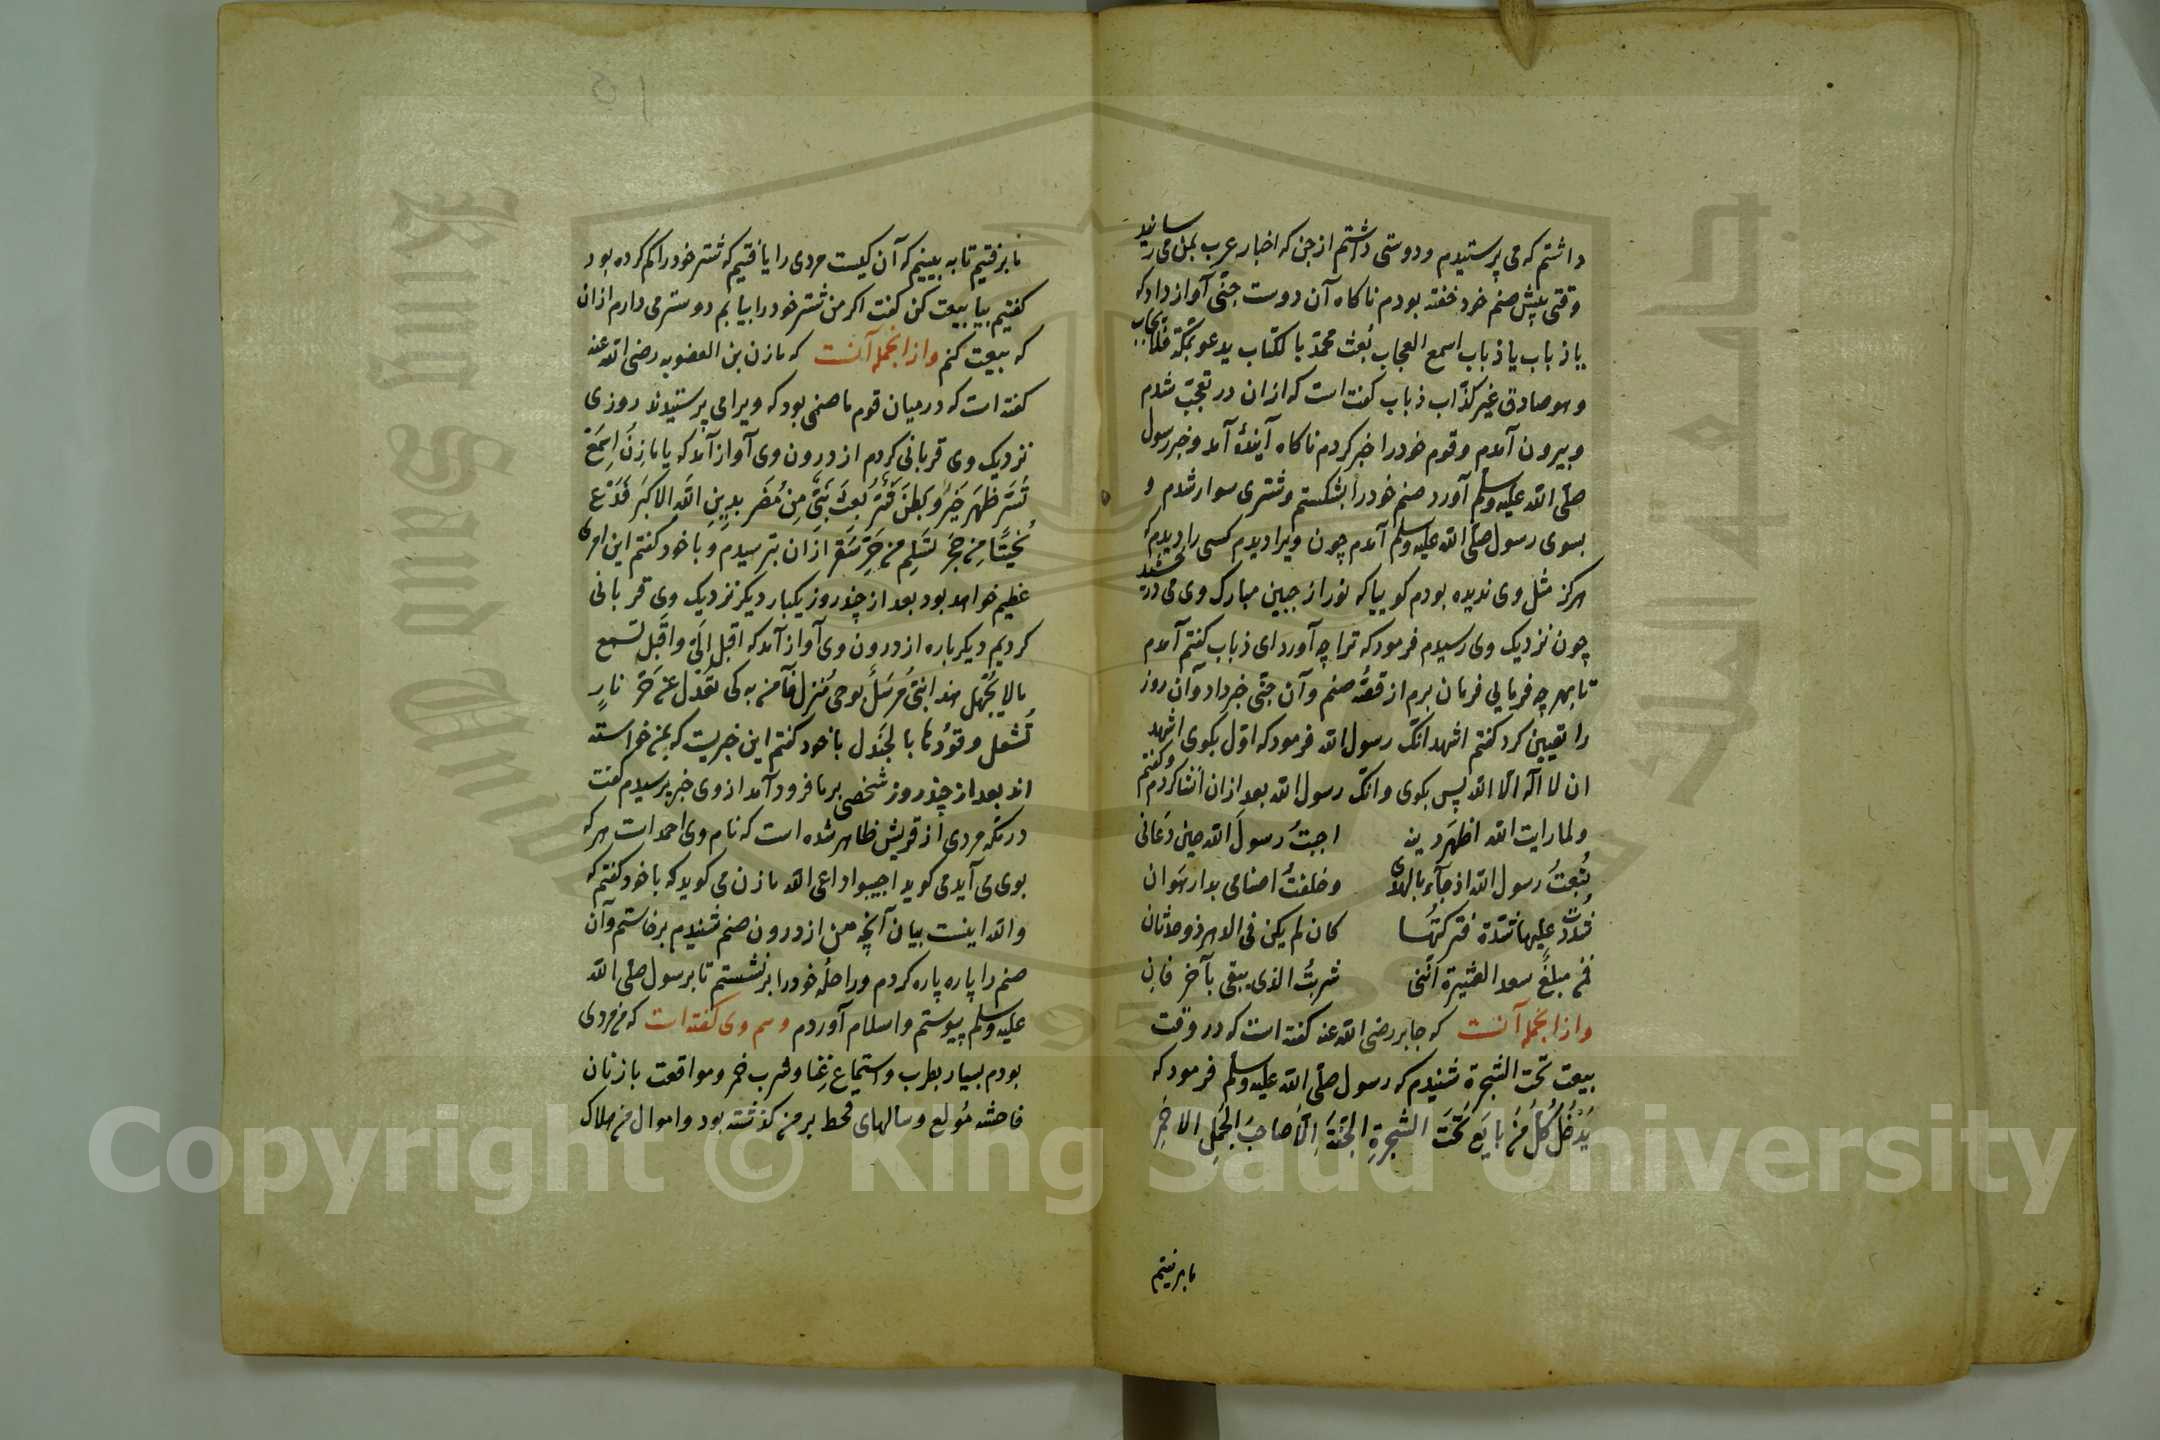 داشتم که می پرستیدم و دوستی داشتم از جن که اخبار عرب بمن می رسانید
وقتی پیش صنم خود خفته بودم ناکاه آن دوست جنّی آواز داد که
یا ذباب یا ذباب اسمع العجاب بُعث محمّد بالکتاب یدعو بمکّة فلا یجاب
و هو صادق غیر کذّاب ذباب کفته است که ازان در تعجّب شدم
و بیرون آمدم و قوم خود را خبر کردم ناکاه آیندۀ آمد و خبر رسول
صلّی الله علیه وسلّم آورد صنم خود را بشکستم و شتری سوار شدم و
بسوی رسول صلّی الله علیه وسلّم آمدم چون ویرا دیدم کسی را دیدم که
هرکز مثل وی ندیده بودم کوییا که نور از جبین مبارک وی می درخشید
چون نزدیک وی رسیدم فرمود که ترا چه آورد ای ذباب کفتم آمدم
تا بهرچه فرمایی فرمان برم از قصّۀ صنم و آن جنّی خبر داد و آن روز
را تعیین کرد کفتم اشهد انّک رسول الله فرمود که اوّل بکوی اشهد
ان لا اله الّا الله پس بکوی و انّک رسول الله بعد ازان انشا کردم و کفتم
ولما رایت الله اظهَر دینه اجبتُ رسولَ الله حین دَعانی
تُبعتُ رسول الله اذ جآء بالهدٰی وخلفتُ اصنامی بدار هَوان
شددتُ علیها شدّة فترکتُها کان لم یکن فی الدهر ذو حدثان
فمن مبلغٌ سعد العشیرة انّنی شریتُ الذی یبقی بآخر فانِ
و از انجمله آنست که جابر رضی الله عنه کفته است که در وقت
بیعت تحت الشجرة شنیدم که رسول صلّی الله علیه وسلّم فرمود که
یَدْخُلُ کُلُّ مَنْ بایَعَ تَحْتَ الشَّجَرةِ الجَنَّةَ اِلّا صاحِبَ الجَمَلِ الاحْمَرِ
ما برفتیم
ما برفتیم تا به بینیم که آن کیست مردی را یافتیم که شتر خود را کم کرده بود
کفتیم بیا بیعت کن کفت اکر من شتر خود را بیابم دوستر می دارم ازان
که بیعت کنم و از انجمله آنست که مازن بن الغضوبه رضی الله عنه
کفته است که در میان قوم ما صنمی بود که ویرا می پرستیدند روزی
نزدیک وی قربانی کردم از درون وی آواز آمد که یا مازِنُ اِسْمَعْ
تُسَرّ ظَهَرَ خَیرٌ وَبَطَنَ شَرٌّ بُعِثَ نَبِیٌّ مِنْ مُضَر بدِینِ الله الاکبَر فَدَعْ
نُحیتًا مِنْ حَجَر تَسْلَم من حَرِّ سَقَر ازان بترسیدم و با خود کفتم این امری
عظیم خواهد بود بعد از چند روز یکبار دیکر نزدیک وی قربانی
کردیم دیکر باره از درون وی آواز آمد که اقبل الَیّ واقبل تسمع
مالا یُجْهَل هذا نبیٌّ مُرسَلٌ بوحی مُنزَل فآمن به کی تُعْدَل عن حَرِّ نارٍ
تُشعل وقوُدُها بالجَندل با خود کفتم این خبریست که بمن خواسته
اند بعد از چند روز شخصی بر ما فرود آمد از وی خبر پرسیدم کفت
در مکّه مردی از قریش ظاهر شده است که نام وی احمد است هرکه
بوی می آید می کوید اجیبوا داعی الله مازن می کوید که با خود کفتم که
والله اینست بیان آنچه من از درون صنم شنیدم برخاستم و آن
صنم را پاره پاره کردم و راحلۀ خود را برنشستم تا برسول صلّی الله
علیه وسلّم پیوستم و اسلام آوردم و هم وی کفته است که من مردی
بودم بسیار بطرب و استماع غِنا و شرب خمر و مواقعت با زنان
فاحشه مُولع و سالهای قحط بر من کذشته بود و اموال من هلاک
Copyright © King Saud University